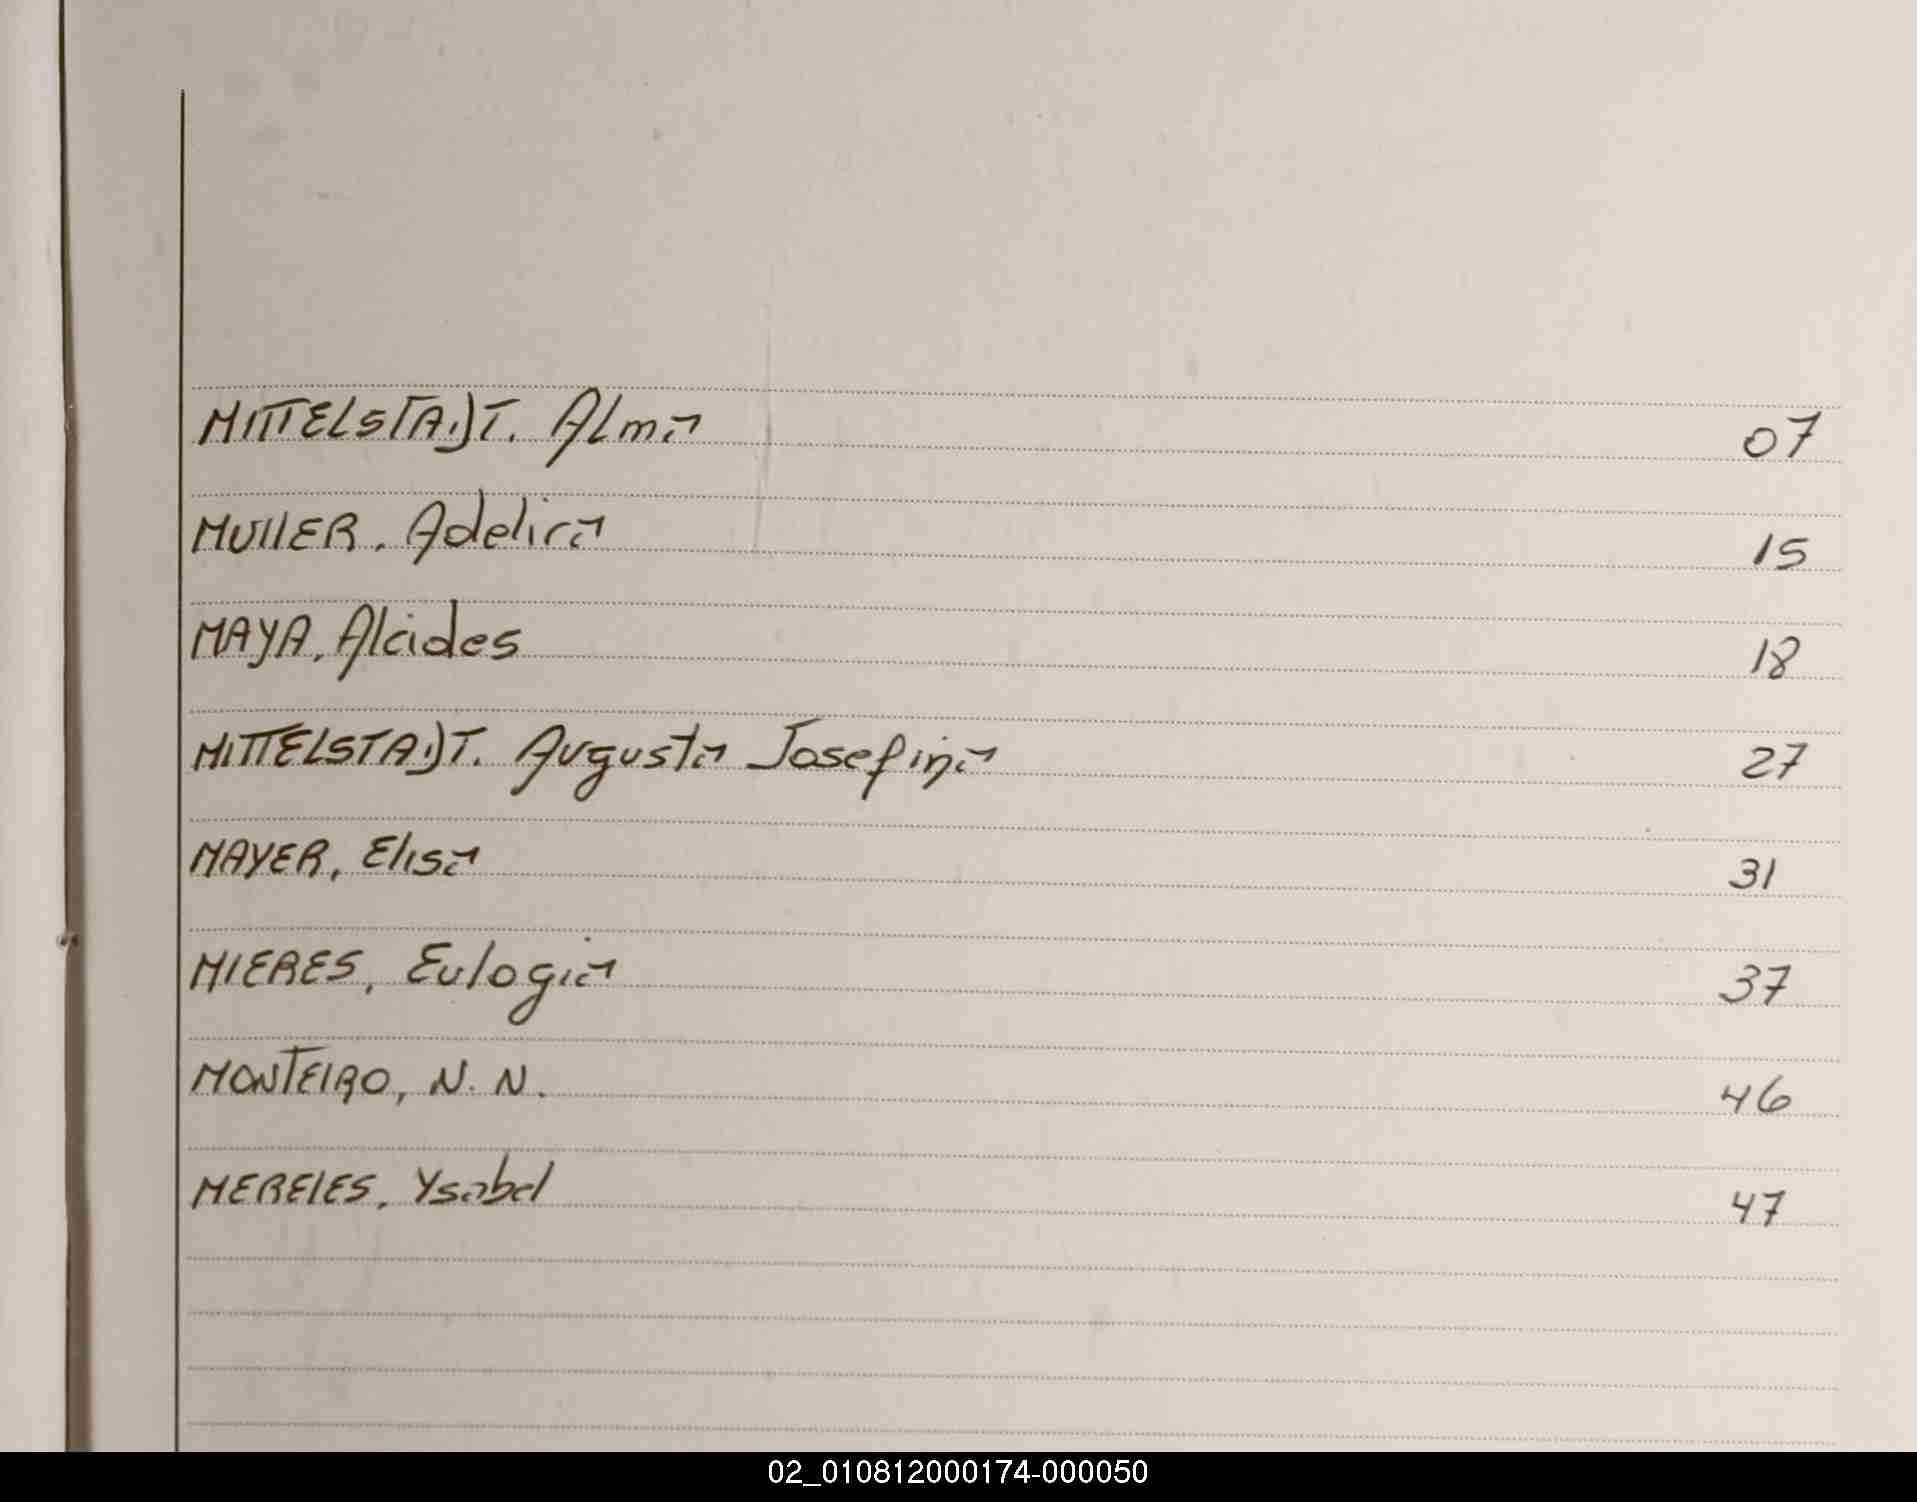 MITTELSTADT. Alma 07
MULLER. Adelira 15
MAYA, Alcides 18
MITTELSTADT. Augusta Josefina 27
MAYER, Elisa 31
MIERES, Eulogia 37
MONTEIRO, N. N. 46
MERELES, Ysabel 47
02_010812000174-000050